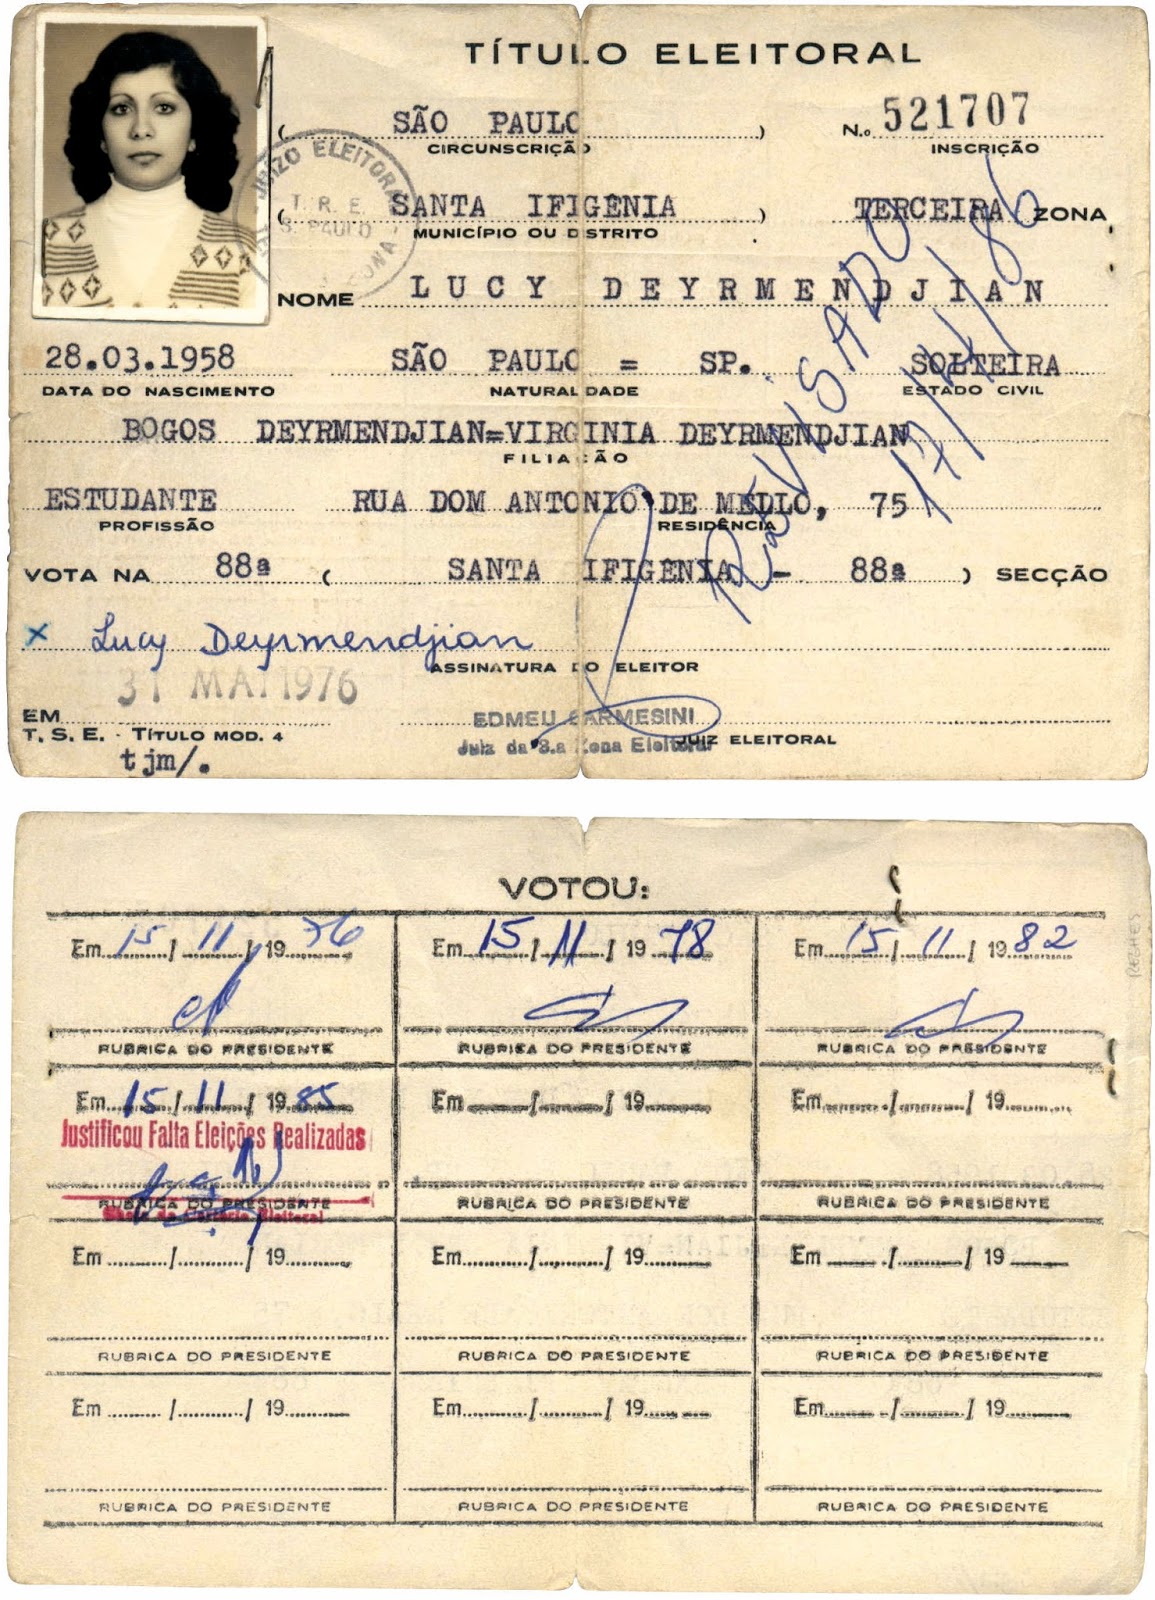 TÍTULO ELEITORAL
SÃO PAULO
N.o 521707
CIRCUNSCRIÇÃO
INSCRIÇÃO
JUIZO ELEITORAL
T. R. E.
S. PAULO
ZONA
SANTA IFIGÊNIA
TERCEIRA ZONA
MUNICÍPIO OU DISTRITO
NOME LUCY DEYRMENDJIAN
28.03.1958 SÃO PAULO = SP. SOLTEIRA
DATA DO NASCIMENTO NATURALIDADE ESTADO CIVIL
BOGOS DEYRMENDJIAN=VIRGINIA DEYRMENDJIAN
FILIAÇÃO
ESTUDANTE RUA DOM ANTONIO DE MELLO, 75
PROFISSÃO RESIDÊNCIA
REVISADO
VOTA NA 88ª ( SANTA IFIGÊNIA - 88ª ) SECÇÃO
x Lucy Deyrmendjian
ASSINATURA DO ELEITOR
31 MAI 1976
EM
EDMEU CARMESINI
T. S. E. - TÍTULO MOD. 4
Juiz da 3.a Zona Eleitoral
JUIZ ELEITORAL
tjm/.
VOTOU:
Em 15/11/1976 Em 15/11/1978 Em 15/11/1982
RUBRICA DO PRESIDENTE RUBRICA DO PRESIDENTE RUBRICA DO PRESIDENTE
Em 15/11/1985 Em / / 19 Em / / 19
Justificou Falta Eleições Realizadas
RUBRICA DO PRESIDENTE RUBRICA DO PRESIDENTE RUBRICA DO PRESIDENTE
Em / / 19 Em / / 19 Em / / 19
RUBRICA DO PRESIDENTE RUBRICA DO PRESIDENTE RUBRICA DO PRESIDENTE
Em / / 19 Em / / 19 Em / / 19
RUBRICA DO PRESIDENTE RUBRICA DO PRESIDENTE RUBRICA DO PRESIDENTE